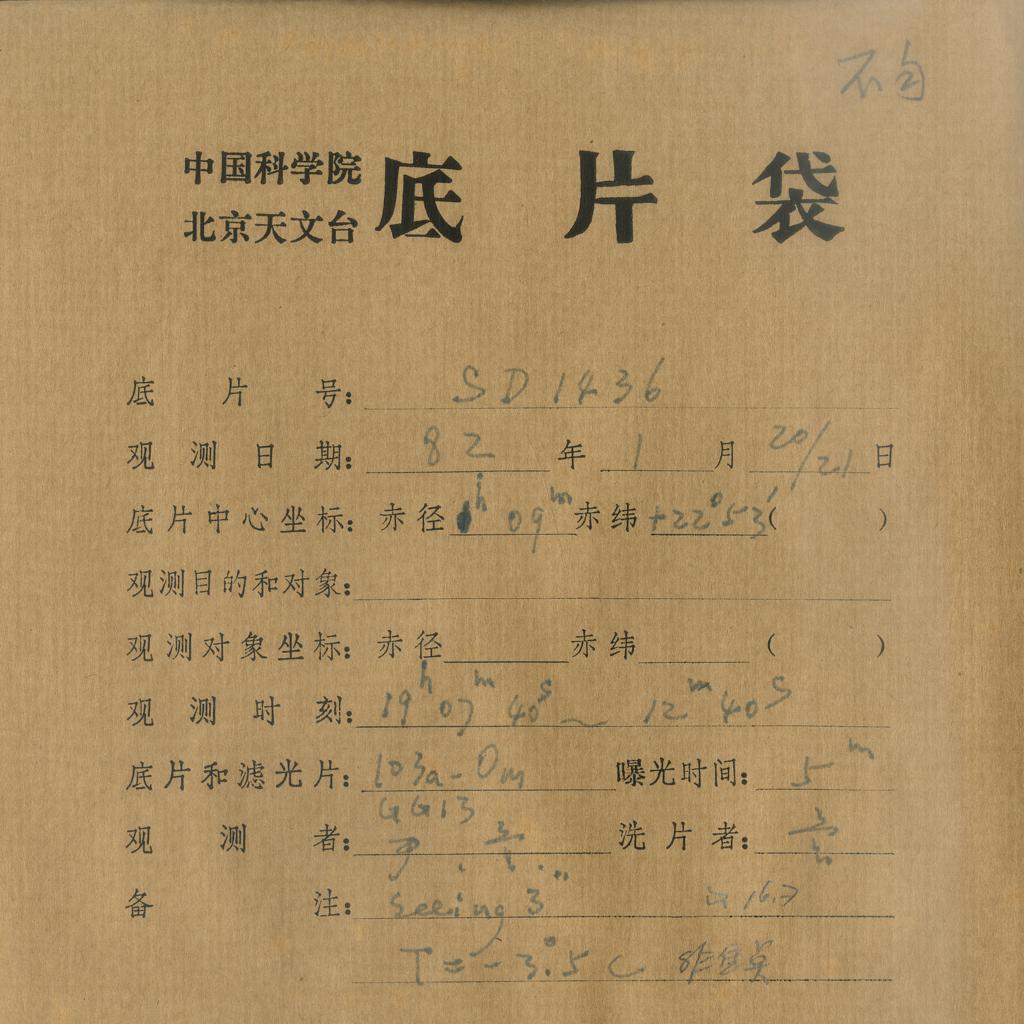 不匀
中国科学院
北京天文台
底片袋
底片号: SD1436
观测日期: 82年1月20/21日
底片中心坐标: 赤径1h09m赤纬+22°53′( )
观测目的和对象:
观测对象坐标: 赤径 赤纬 ( )
观测时刻: 19h07m40s~12m40s
底片和滤光片: 103a-Om 曝光时间: 5m
GG13
观测者: 洗片者:
备注: Seeing 3" 16.7
T=-3°.5C